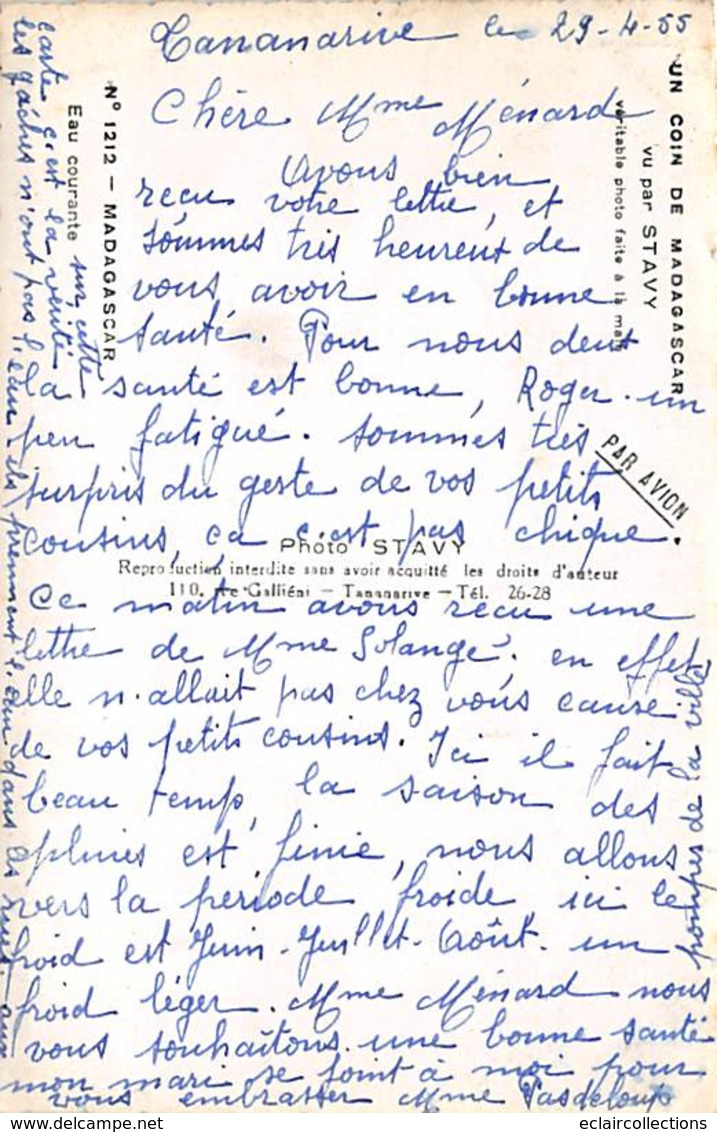 Tananarive le 29-4-55
Chère Mme Ménard
Avons bien
reçu votre lettre, et
sommes très heureux de
vous avoir en bonne
santé. Pour nous deux
la santé est bonne, Roger un
peu fatigué. sommes très
surpris du geste de vos petits
cousins, ça c'est pas chique.
Ce matin avons reçu une
lettre de Mme Solange, en effet
elle n'allait pas chez vous cause
de vos petits cousins. Ici il fait
beau temps, la saison des
pluies est finie, nous allons
vers la période froide, ici le
froid est Juin-Juillet-Août. un
froid léger. Mme Ménard nous
vous souhaitons une bonne santé
mon mari se joint à moi pour
vous embrasser Mme Pasdeloup
sur cette
carte c'est la vérité
les gâches n'ont pas l'eau ils prennent l'eau dans les rues aux
pompes de la ville
UN COIN DE MADAGASCAR
vu par STAVY
véritable photo faite à la main
N° 1212 — MADAGASCAR
Eau courante
PAR AVION
Photo STAVY
Reproduction interdite sans avoir acquitté les droits d'auteur
110, rue Galliéni — Tananarive — Tél. 26-28
eclaircollections